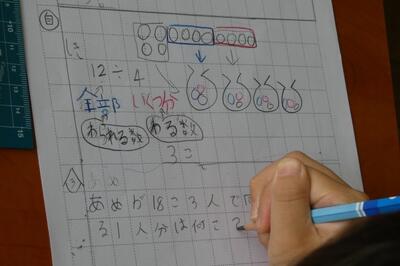 自
12÷4
全部 いくつ分
わられる数 わる数
3こ
あめが18こ3人で
る1人分は何こ